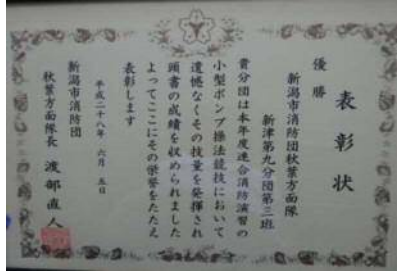 表彰状
優勝
新潟市消防団秋葉方面隊
新津第九分団第三班
貴分団は本年度連合消防演習の
小型ポンプ操法競技において
遺憾なくその技量を発揮され
頭書の成績を収められました
よってここにその栄誉をたたえ
表彰します
平成二十八年 六月 五日
新潟市消防団
秋葉方面隊長 渡部直人